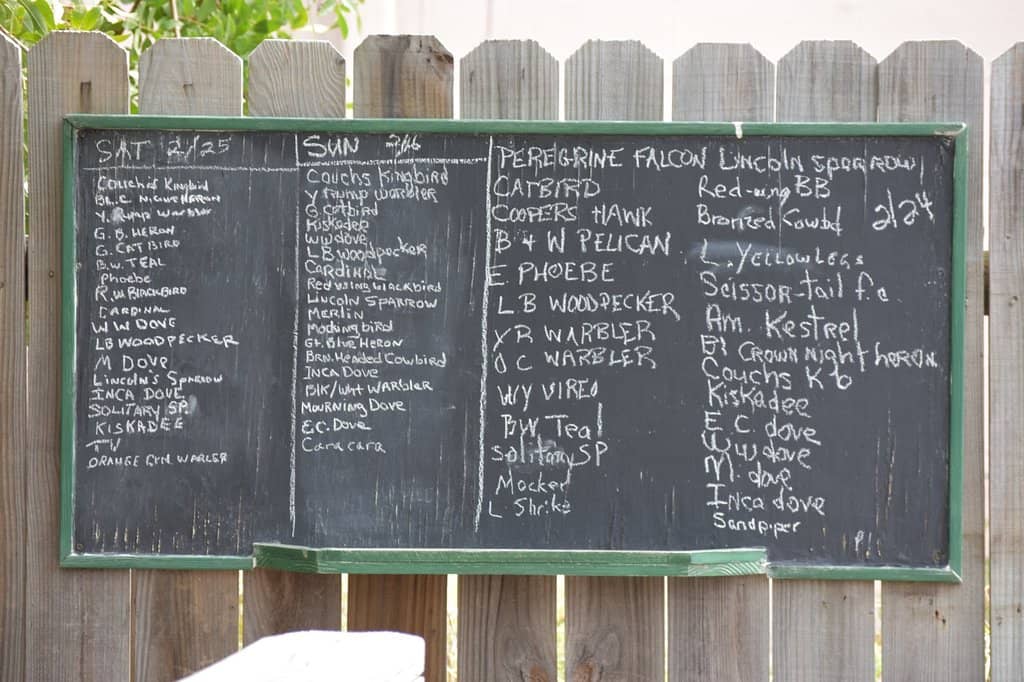 SAT 2/25
Couch's Kingbird
Bl. C. Night Heron
Y. Rump Warbler
G. B. HERON
G. CAT BIRD
B.W. TEAL
Phoebe
R.W BLACKBIRD
CARDINAL
W W DOVE
LB WOODPECKER
M DOVE
Lincoln's Sparrow
INCA DOVE
SOLITARY SP.
KISKADEE
TV
ORANGE CRN WARBLER
SUN 2/26
Couchs Kingbird
Y Rump Warbler
G. Catbird
Kiskadee
WW dove
LB Woodpecker
Cardinal
Red wing blackbird
Lincoln Sparrow
Merlin
Mockingbird
Gt. Blue Heron
Brn. Headed Cowbird
INCA DOVE
Blk/wht Warbler
Mourning Dove
E.C. Dove
Cara cara
PEREGRINE FALCON
CATBIRD
COOPERS HAWK
B & W PELICAN
E. PHOEBE
L.B WOODPECKER
Y R WARBLER
O C WARBLER
W/Y VIREO
B W Teal
Solitary SP
Mocker
L. Shrike
Lincoln Sparrow
Red-wing BB
Bronzed Cowbd
2/24
L. Yellowlegs
Scissor-tail f.c.
Am. Kestrel
Bl Crown night heron
Couchs Kb
Kiskadee
E.C. dove
W w dove
M. dove
Inca dove
Sandpiper